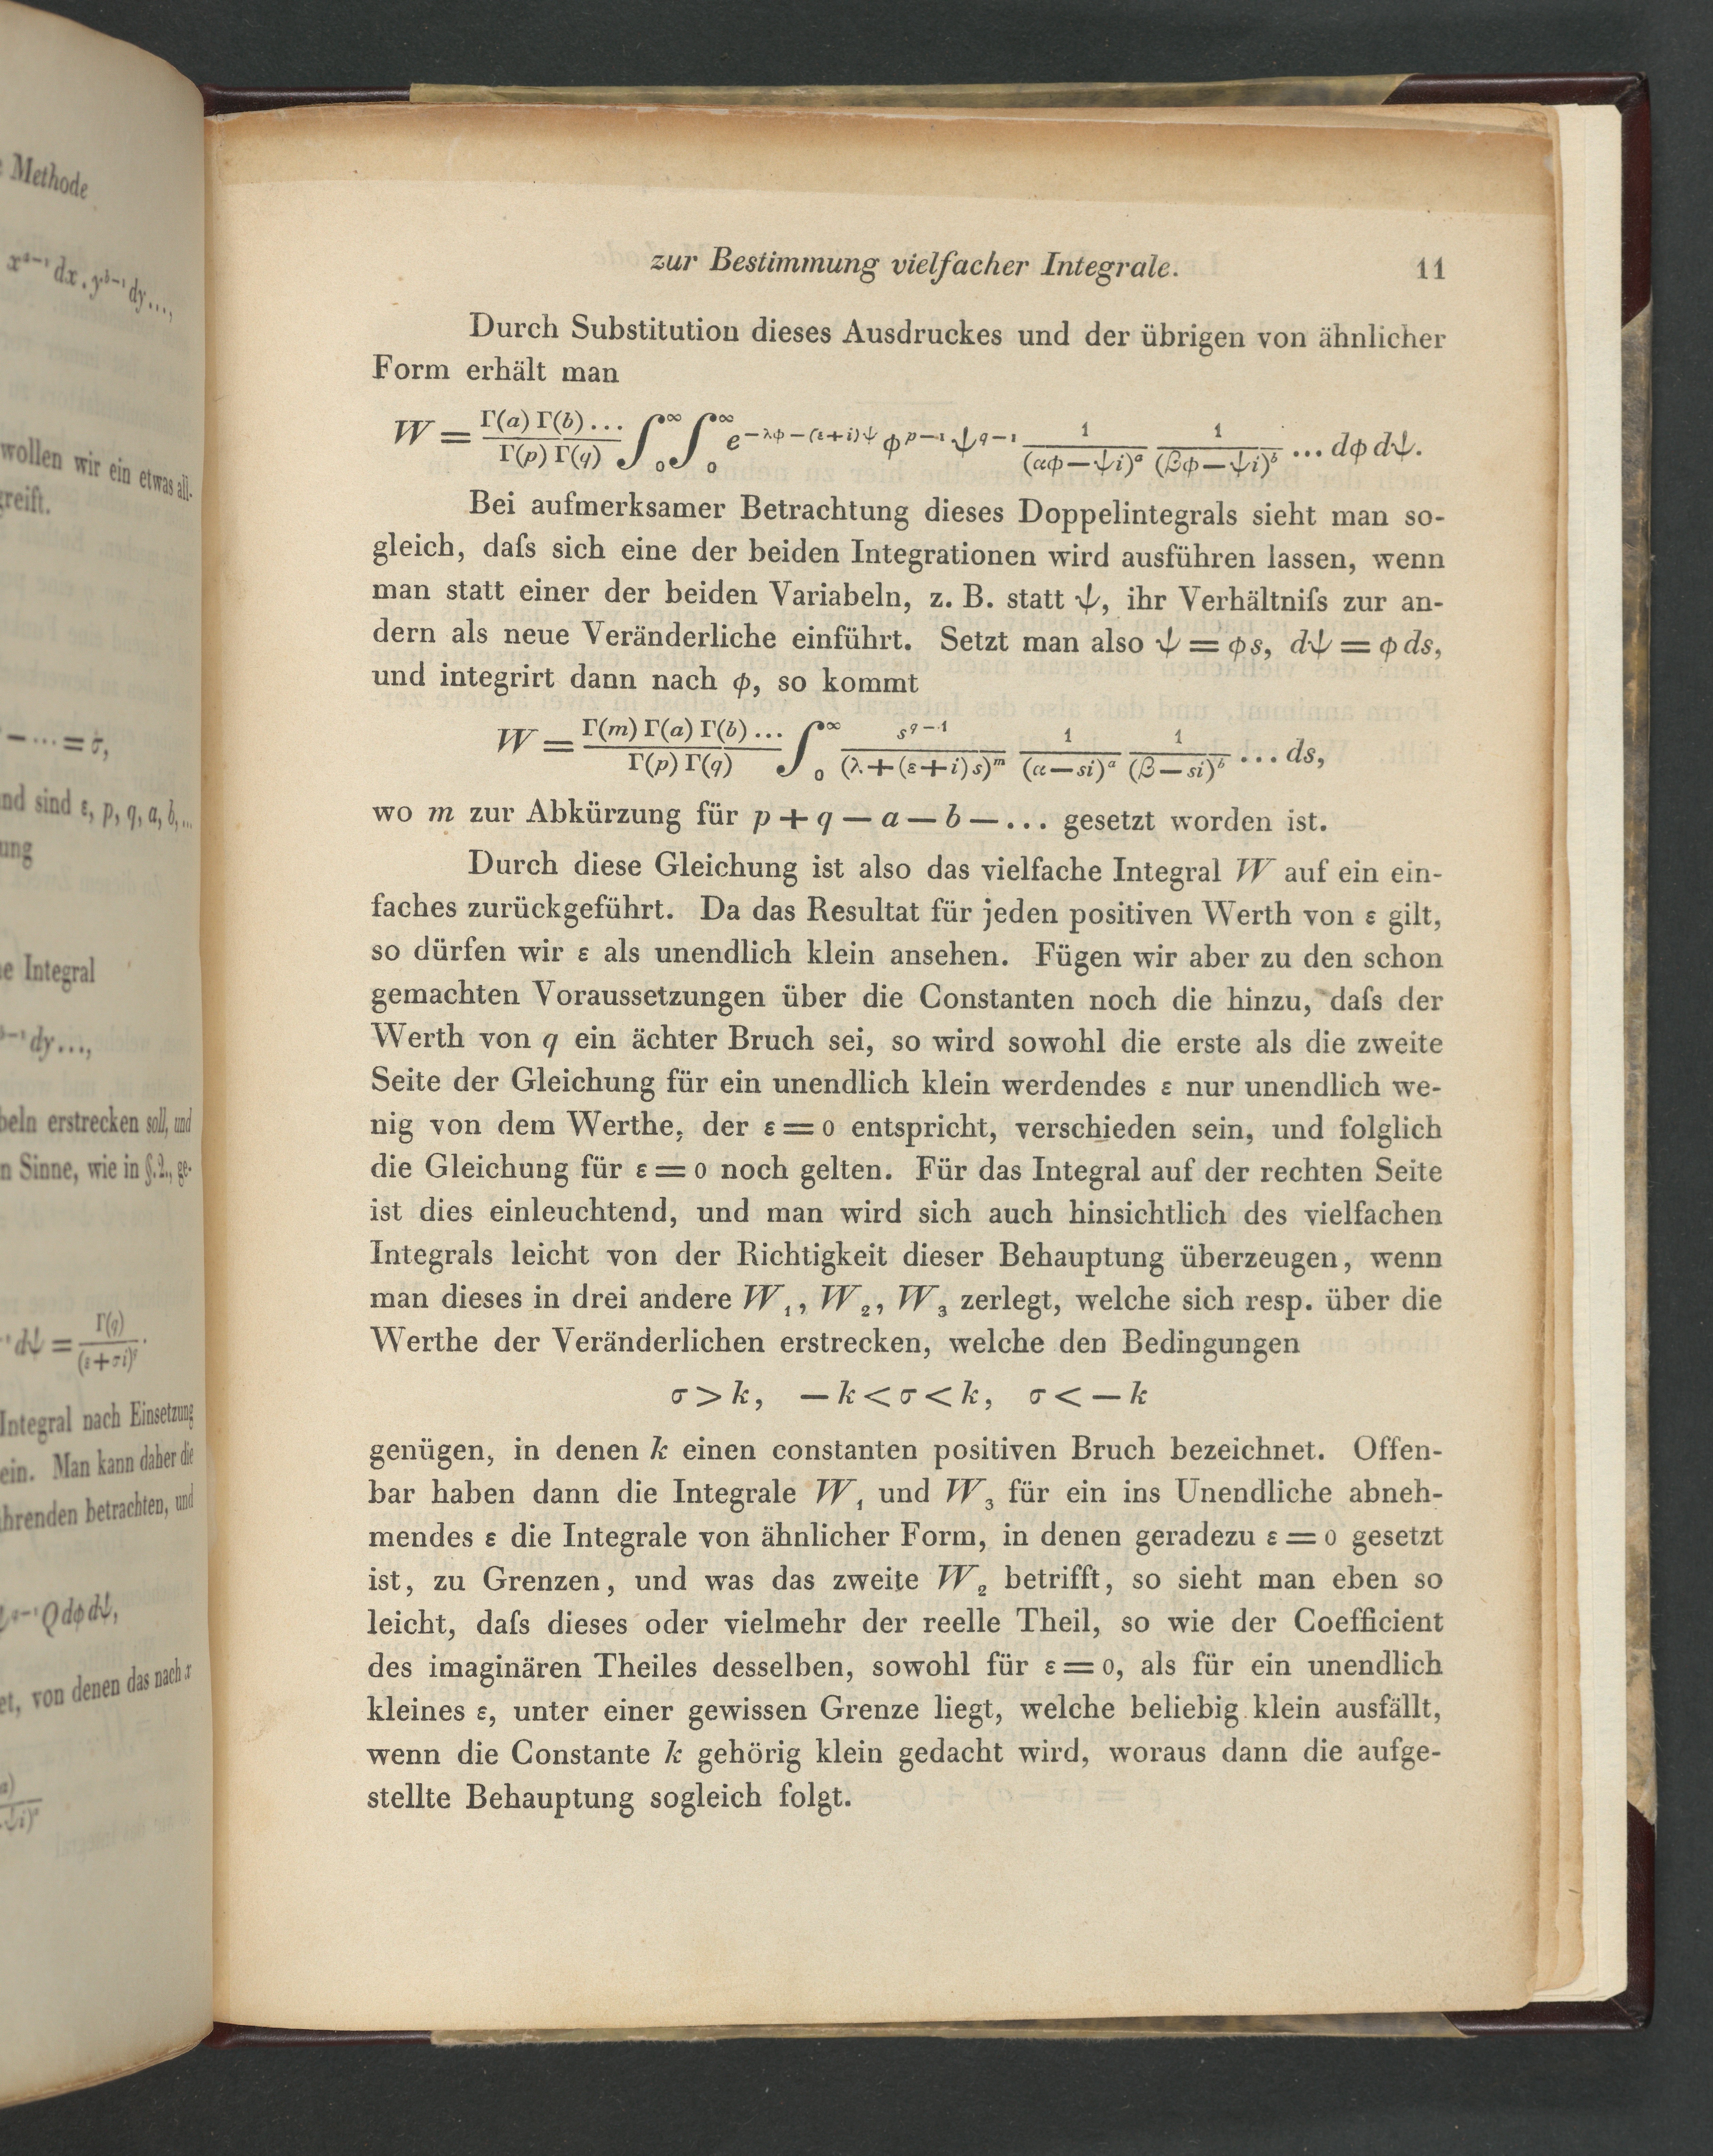 Methode
x^{a-1} dx . y^{b-1} dy...,
wollen wir ein etwas all-
greift.
— ... = σ,
und sind ε, p, q, a, b, ...
ung
Integral
dy...,
beln erstrecken soll, und
n Sinne, wie in §.2., ge-
dψ = Γ(q)/(ε+σi)^q.
Integral nach Einsetzung
ein. Man kann daher die
ührenden betrachten, und
Q dφ dψ,
et, von denen das nach x
zur Bestimmung vielfacher Integrale. 11
Durch Substitution dieses Ausdruckes und der übrigen von ähnlicher
Form erhält man
W = Γ(a) Γ(b) .../Γ(p) Γ(q) ∫_0^∞ ∫_0^∞ e^{−λφ−(ε+i)ψ} φ^{p−1} ψ^{q−1} 1/(αφ−ψi)^a 1/(βφ−ψi)^b ... dφ dψ.
Bei aufmerksamer Betrachtung dieses Doppelintegrals sieht man so-
gleich, daſs sich eine der beiden Integrationen wird ausführen lassen, wenn
man statt einer der beiden Variabeln, z. B. statt ψ, ihr Verhältniſs zur an-
dern als neue Veränderliche einführt. Setzt man also ψ = φ s, dψ = φ ds,
und integrirt dann nach φ, so kommt
W = Γ(m) Γ(a) Γ(b) .../Γ(p) Γ(q) ∫_0^∞ s^{q−1}/(λ+(ε+i)s)^m 1/(α−si)^a 1/(β−si)^b ... ds,
wo m zur Abkürzung für p + q — a — b — ... gesetzt worden ist.
Durch diese Gleichung ist also das vielfache Integral W auf ein ein-
faches zurückgeführt. Da das Resultat für jeden positiven Werth von ε gilt,
so dürfen wir ε als unendlich klein ansehen. Fügen wir aber zu den schon
gemachten Voraussetzungen über die Constanten noch die hinzu, daſs der
Werth von q ein ächter Bruch sei, so wird sowohl die erste als die zweite
Seite der Gleichung für ein unendlich klein werdendes ε nur unendlich we-
nig von dem Werthe, der ε = 0 entspricht, verschieden sein, und folglich
die Gleichung für ε = 0 noch gelten. Für das Integral auf der rechten Seite
ist dies einleuchtend, und man wird sich auch hinsichtlich des vielfachen
Integrals leicht von der Richtigkeit dieser Behauptung überzeugen, wenn
man dieses in drei andere W₁, W₂, W₃ zerlegt, welche sich resp. über die
Werthe der Veränderlichen erstrecken, welche den Bedingungen
σ > k, — k < σ < k, σ < — k
genügen, in denen k einen constanten positiven Bruch bezeichnet. Offen-
bar haben dann die Integrale W₁ und W₃ für ein ins Unendliche abneh-
mendes ε die Integrale von ähnlicher Form, in denen geradezu ε = 0 gesetzt
ist, zu Grenzen, und was das zweite W₂ betrifft, so sieht man eben so
leicht, daſs dieses oder vielmehr der reelle Theil, so wie der Coefficient
des imaginären Theiles desselben, sowohl für ε = 0, als für ein unendlich
kleines ε, unter einer gewissen Grenze liegt, welche beliebig klein ausfällt,
wenn die Constante k gehörig klein gedacht wird, woraus dann die aufge-
stellte Behauptung sogleich folgt.